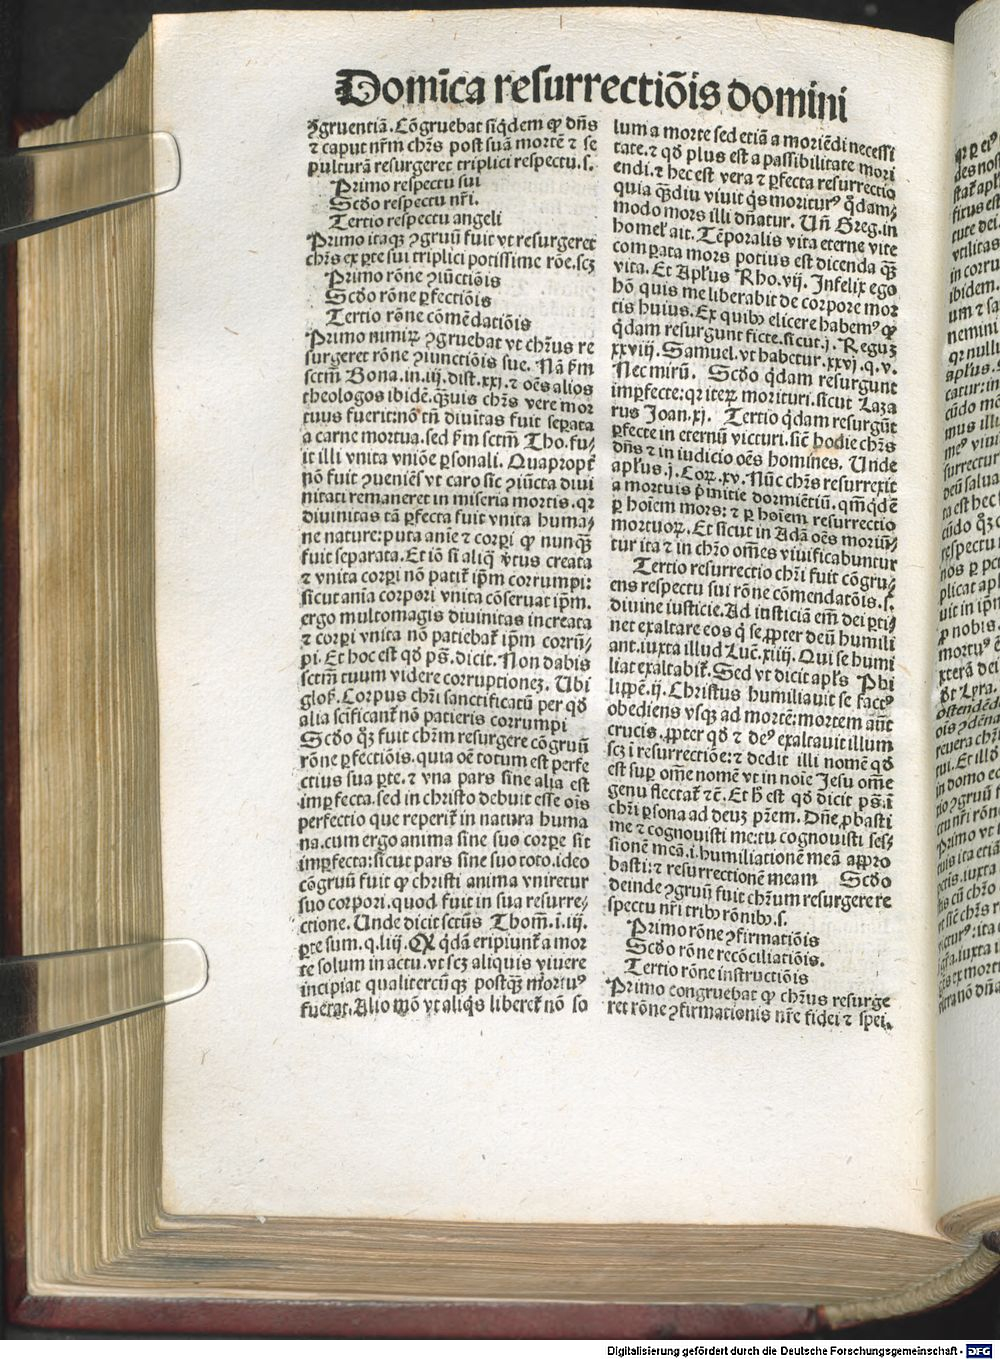 Domīca resurrectiōis domini
ꝯgruentiā. Cōgruebat siqͥdem ꝙ dn̄s
⁊ caput nr̄m chr̄s post suā mortē ⁊ se
pulturā resurgeret triplici respectu. s.
Primo respectu sui
Scd̄o respectu nr̄i.
Tertio respectu angeli
Primo itaqꝫ ꝯgruū fuit vt resurgeret
chr̄s ex ꝑte sui triplici potissime rōe. scꝫ
Primo rōne ꝯiūctiōis
Scd̄o rōne ꝑfectiōis
Tertio rōne cōmēdatiōis
Primo nimiꝝ ꝯgruebat vt chr̄us re
surgeret rōne ꝯiunctiōis sue. Nā ẜm
sctm̄ Bona. in. iij. dist. xxi. ⁊ oēs alios
theologos ibidē. qͣuis chr̄s vere mor
tuus fuerit: nō tn̄ diuitas fuit seꝑata
a carne mortua. sed ẜm sctm̄ Tho. fu⸗
it illi vnita vniōe ꝑsonali. Quapropt̄
nō fuit ꝯueniēs vt caro sic ꝯiūcta diui
nitati remaneret in miseria mortis. qꝛ
diuinitas tā ꝑfecta fuit vnita huma⸗
ne nature: puta anīe ⁊ corꝑi ꝙ nunqͣꝫ
fuit separata. Et iō si aliqͣ v̄tus creata
⁊ vnita corꝑi nō patit̄ ip̄m corrumpi:
sicut anīa corpori vnita cōseruat ip̄m.
ergo multomagis diuinitas increata
⁊ corꝑi vnita nō patiebat̄ ip̄m corrū⸗
pi. Et hoc est qd̄ ps̄. dicit. Non dabis
sctm̄ tuum videre corruptioneꝫ. Ubi
glos̄. Corpus chr̄i sanctificatū per qd̄
alia scificant̄ nō patieris corrumpi
Scd̄o qͣꝫ fuit chr̄m resurgere cōgruū
rōne ꝑfectiōis. quia oē totum est perfe
ctius sua ꝑte. ⁊ vna pars sine alia est
imꝑfecta. sed in christo debuit esse oīs
perfectio que reperit̄ in natura huma
na. cum ergo anima sine suo corꝑe sit
imꝑfecta: sicut pars sine suo toto. ideo
cōgruū fuit ꝙ christi anima vniretur
suo corpori. quod fuit in sua resurre⸗
ctione. Unde dicit sctūs Thom̄. i. iij.
ꝑte sum. q. liij. Qꝫ qͥdā eripiunt̄ a mor
te solum in actu. vt scꝫ aliquis viuere
incipiat qualitercūqꝫ postqͣꝫ mortuꝰ
fuerat. Alio mō vt aliqͥs liberet̄ nō so
lum a morte sed etiā a moriēdi necessi
tate. ⁊ qd̄ plus est a passibilitate mori
endi. ⁊ hec est vera ⁊ ꝑfecta resurrectio
quia qͣdiu viuit qͥs moriturꝰ qͦdam⸗
modo mors illi dn̄atur. Un̄ Greg. in
homel̄ ait. Tēporalis vita eterne vite
comꝑata mors potius est dicenda qͣꝫ
vita. Et Apl̄us Rho. vij. Infelix ego
hō quis me liberabit de corpore mor
tis huius. Ex quibꝰ elicere habemꝰ ꝙ
qͥdam resurgunt ficte. sicut. j. Reguꝫ
xxviij. Samuel. vt habetur. xxvj. q. v.
Nec mirū. Scd̄o qͥdam resurgunt
imꝑfecte: qꝛ iteꝝ morituri. sicut Laza
rus Joan. xj. Tertio qͥdam resurgūt
ꝑfecte in eternū victuri. sic̄ hodie chr̄s
dn̄s ⁊ in iudicio oēs homines. Unde
apl̄us. j. Coꝝ. xv. Nūc chr̄s resurrexit
a mortuis pͥmitie dormiētiū. qm̄qͥdē
ꝑ hoīem mors: ⁊ ꝑ hoīem resurrectio
mortuoꝝ. Et sicut in Adā oēs moriū⸗
tur ita ⁊ in chr̄o om̄es viuificabuntur
Tertio resurrectio chr̄i fuit cōgru⸗
ens respectu sui rōne cōmendatōis. s.
diuine iusticie. Ad iusticiā em̄ dei ꝑti⸗
net exaltare eos qͥ se ꝓpter deū humili
ant. iuxta illud Luc̄. xiiij. Qui se humi
liat exaltabit̄. Sed vt dicit apl̄s Phi
lippē. ij. Christus humiliauit se factꝰ
obediens vsqꝫ ad mortē: mortem aūt
crucis. ꝓpter qd̄ ⁊ deꝰ exaltauit illum
scꝫ ī resurrectiōe: ⁊ dedit illi nomē qd̄
est suꝑ om̄e nomē vt in noīe Jesu om̄e
genu flectat̄ ⁊c̄. Et h̄ est qd̄ dicit ps̄. ī
chr̄i ꝑsona ad deuꝫ pr̄em. Dn̄e ꝓbasti
me ⁊ cognouisti me: tu cognouisti ses⸗
sionē meā. i. humiliationē meā apꝓro
basti: ⁊ resurrectionē meam Scd̄o
deinde ꝯgruū fuit chr̄um resurgere re
spectu nr̄i tribꝰ rōnibꝰ. s.
Primo rōne ꝯfirmatiōis
Scd̄o rōne recōciliatiōis.
Tertio rōne instructiōis
Primo congruebat ꝙ chr̄us resurge
ret rōne ꝯfirmationis nr̄e fidei ⁊ spei.
Digitalisierung gefördert durch die Deutsche Forschungsgemeinschaft - DFG